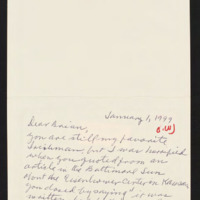 January 1, 1999
Dear Brian,
You are still my favorite
Irishman, but I was horrified
when you quoted from an
article in the Baltimore Sun
about the Eisenhower Center in Kansas,
You closed by saying "it was
written